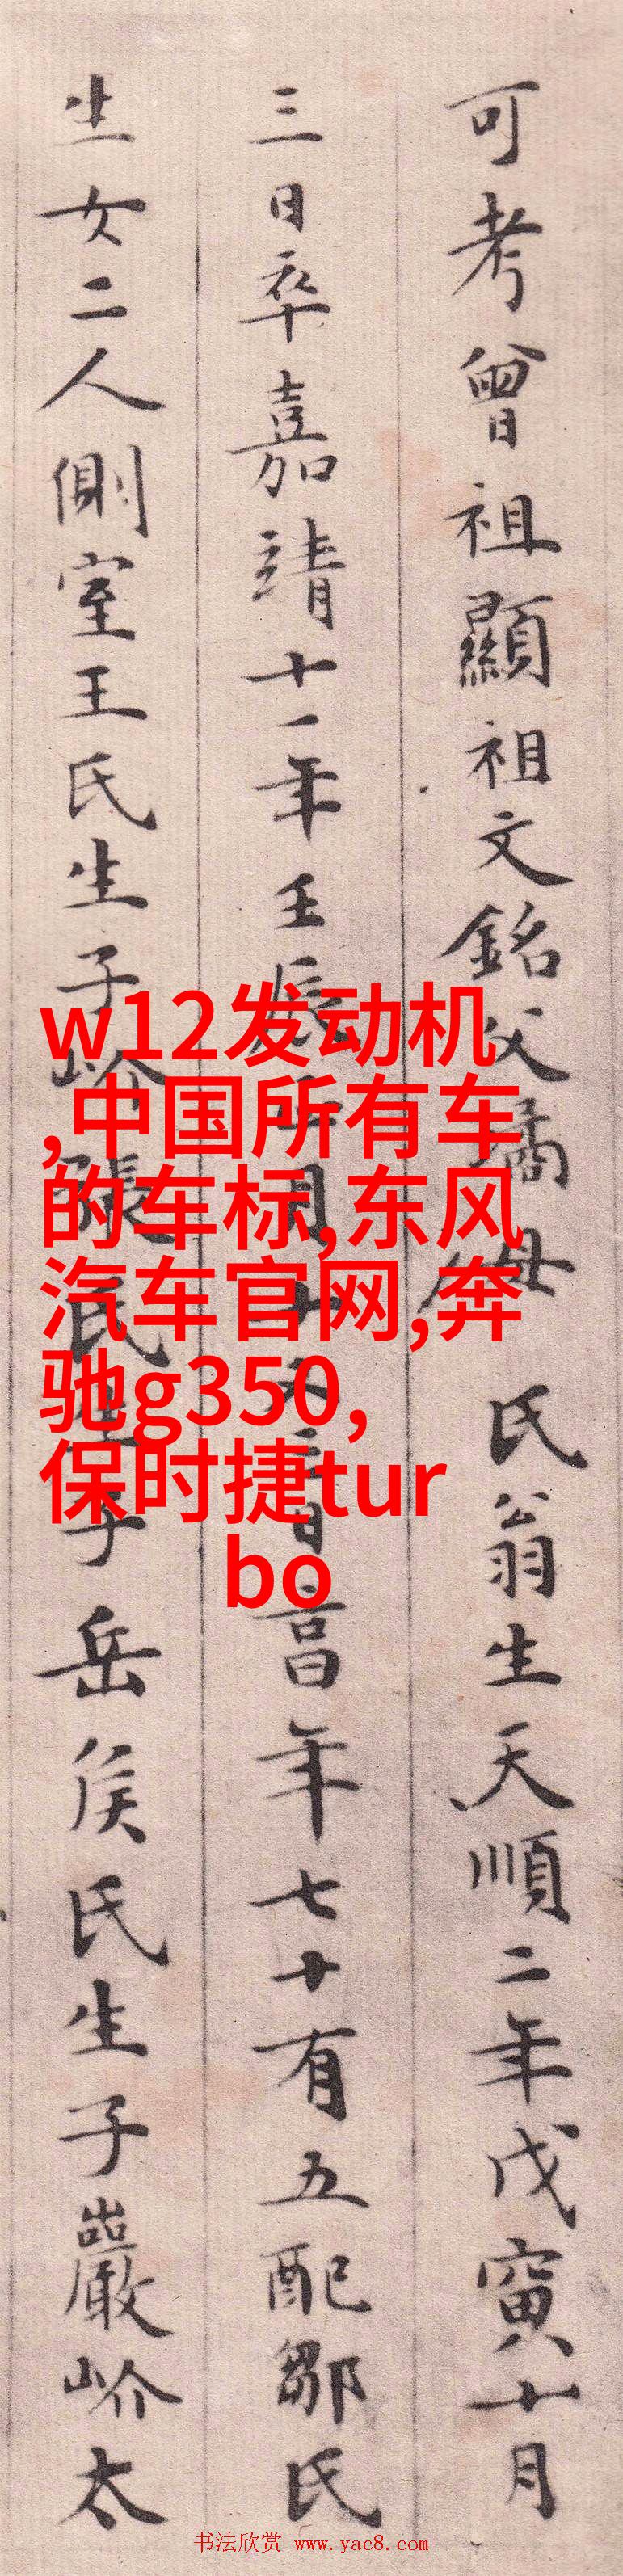 可考曾祖顯祖文銘父璚母氏翁生天順二年戊寅十月
三日卒嘉靖十一年壬辰正月十又三日言年七十有五配鄒氏
生女二人側室王氏生子岎張氏生子岳侯氏生子巖岎太
w12发动机
,中国所有车
的车标,东风
汽车官网,奔
驰g350,
保时捷tur
bo
书法欣赏 www.yac8.com